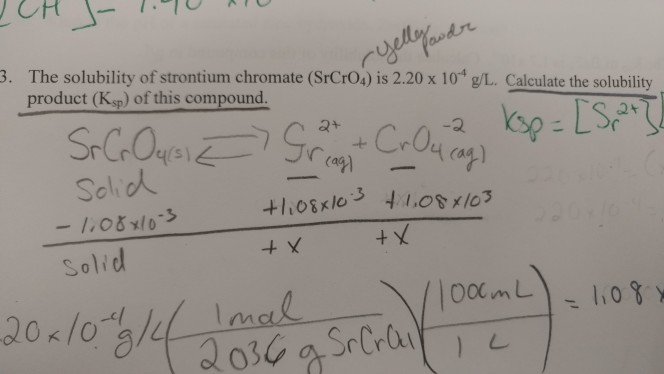 CH ] = 1.40 x10
yellow powder
3. The solubility of strontium chromate (SrCrO₄) is 2.20 x 10⁻⁴ g/L. Calculate the solubility
product (Ksp) of this compound.
Ksp = [Sr²⁺][
SrCrO₄(s) ⇌ Sr²⁺(aq) + CrO₄⁻²(aq)
Solid
- 1.08x10⁻³ +1.08x10⁻³ +1.08x10³
Solid +x +x
20x10⁻⁴ g/L (1 mol / 203.6 g SrCrO₄) (1000mL / 1 L) = 1.08 x